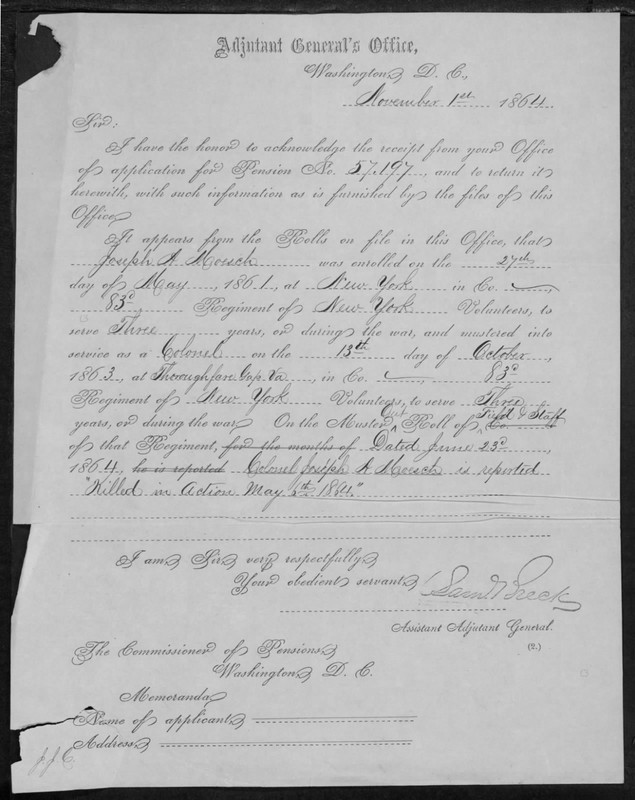 Adjutant General's Office,
Washington, D. C.,
November 1st 1864
Sir:
I have the honor to acknowledge the receipt from your Office
of application for Pension No. 57,197, and to return it
herewith, with such information as is furnished by the files of this
Office.
It appears from the Rolls on file in this Office, that
Joseph A Moesch was enrolled on the 27th
day of May, 1861, at New York in Co.
83d Regiment of New York Volunteers, to
serve Three years, or during the war, and mustered into
service as a Colonel on the 13th day of October,
1863, at Thoroughfare Gap. Va, in Co. 83d
Regiment of New York Volunteers, to serve Three
years, or during the war. On the Muster Out Roll of Co. Field & Staff
of that Regiment, for the months of Dated June 23d,
1864, he is reported Colonel Joseph A Moesch is reported
"Killed in Action May 6th 1864."
I am, Sir, very respectfully,
Your obedient servant,
Saml Breck
Assistant Adjutant General.
(2.)
The Commissioner of Pensions,
Washington, D. C.
Memoranda.
Name of applicant,
Address,